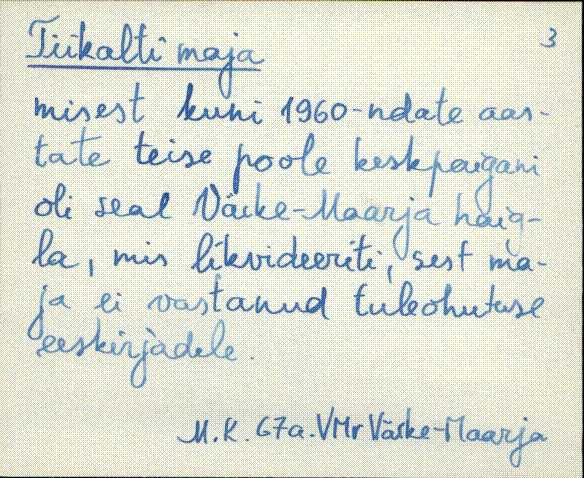 Tiikalti maja
3
misest kuni 1960-ndate aas-
tate teise poole keskpaigani
oli seal Väike-Maarja haig-
la, mis likvideeriti, sest ma-
ja ei vastanud tuleohutuse
eeskirjadele.
M.K. 67a. VMr Väike-Maarja